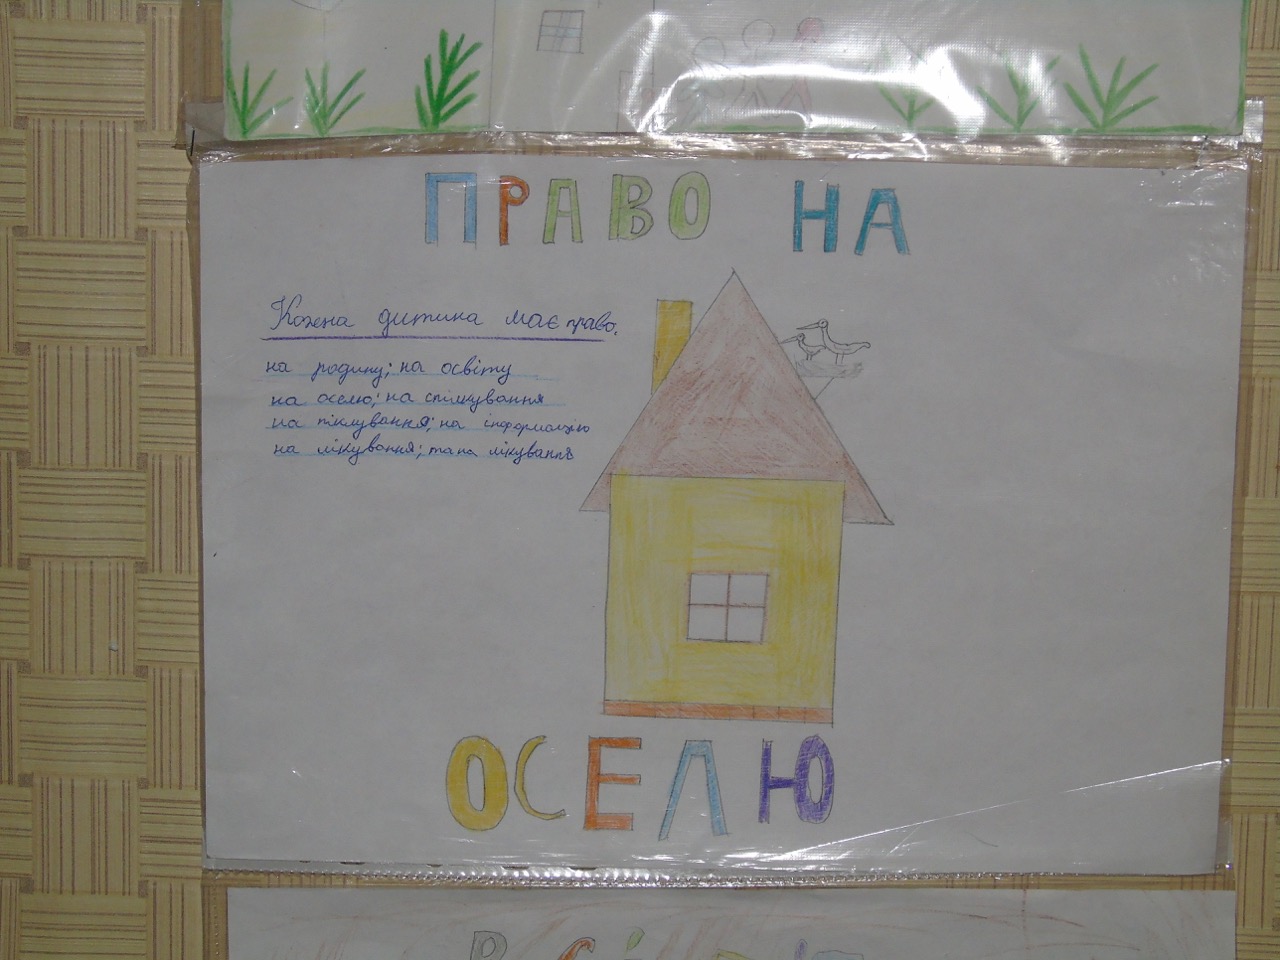 ПРАВО НА
Кожна дитина має право.
на родину; на освіту
на оселю; на спілкування
на піклування; на інформацію
на лікування; та на лікування
ОСЕЛЮ